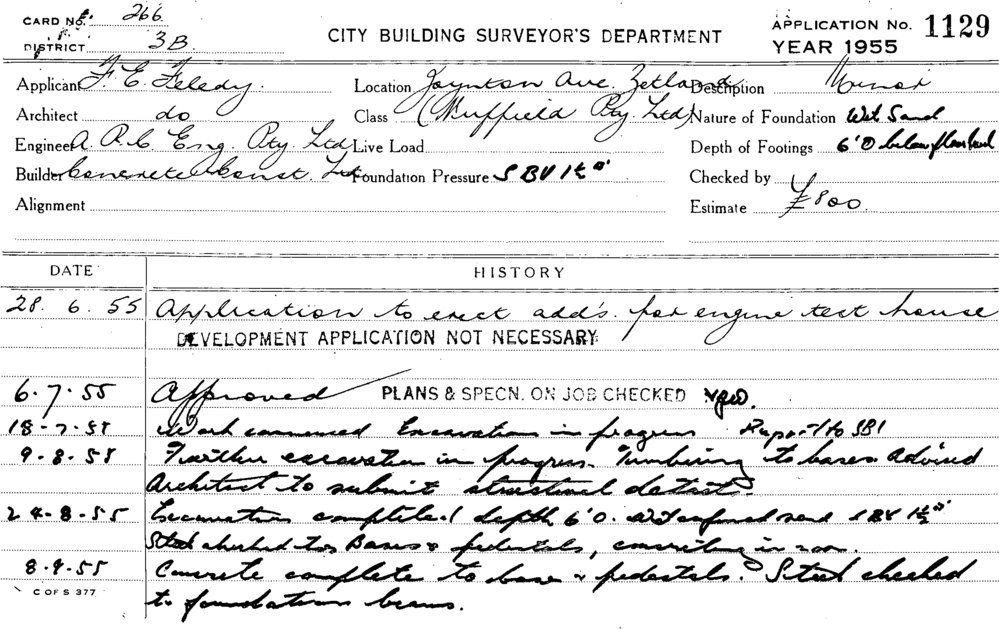 CARD No. 266
DISTRICT 3B
CITY BUILDING SURVEYOR'S DEPARTMENT
APPLICATION No. 1129
YEAR 1955
Applicant F. E. Feledy. Location Joynton Ave. Zetland Description Minor
Architect do Class (Nuffield Pty Ltd) Nature of Foundation Wet Sand
Engineer A. R. C. Eng. Pty. Ltd Live Load Depth of Footings 6'0 below floor level
Builder Concrete Const. Ltd. Foundation Pressure SBV 1½
Alignment Checked by
Estimate £800.
DATE HISTORY
28. 6. 55 Application to erect add's. for engine test house
DEVELOPMENT APPLICATION NOT NECESSARY
6.7.55 Approved PLANS & SPECN. ON JOB CHECKED
18-7-55 Work commenced Excavation in progress Report to SBI
9-8-55 Further excavation in progress. Timbering to bases. Advised
Architect to submit structural details.
24-8-55 Excavation completed depth 6'0. Wet confined sand SBV 1½
Steel checked to Bases & pedestals, concreting in
8-9-55 Concrete complete to base & pedestals. Steel checked
to foundation beams.
C OF S 377